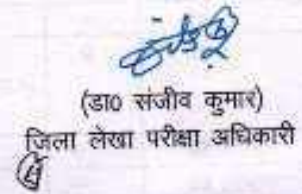 (डा० संजीव कुमार)
जिला लेखा परीक्षा अधिकारी